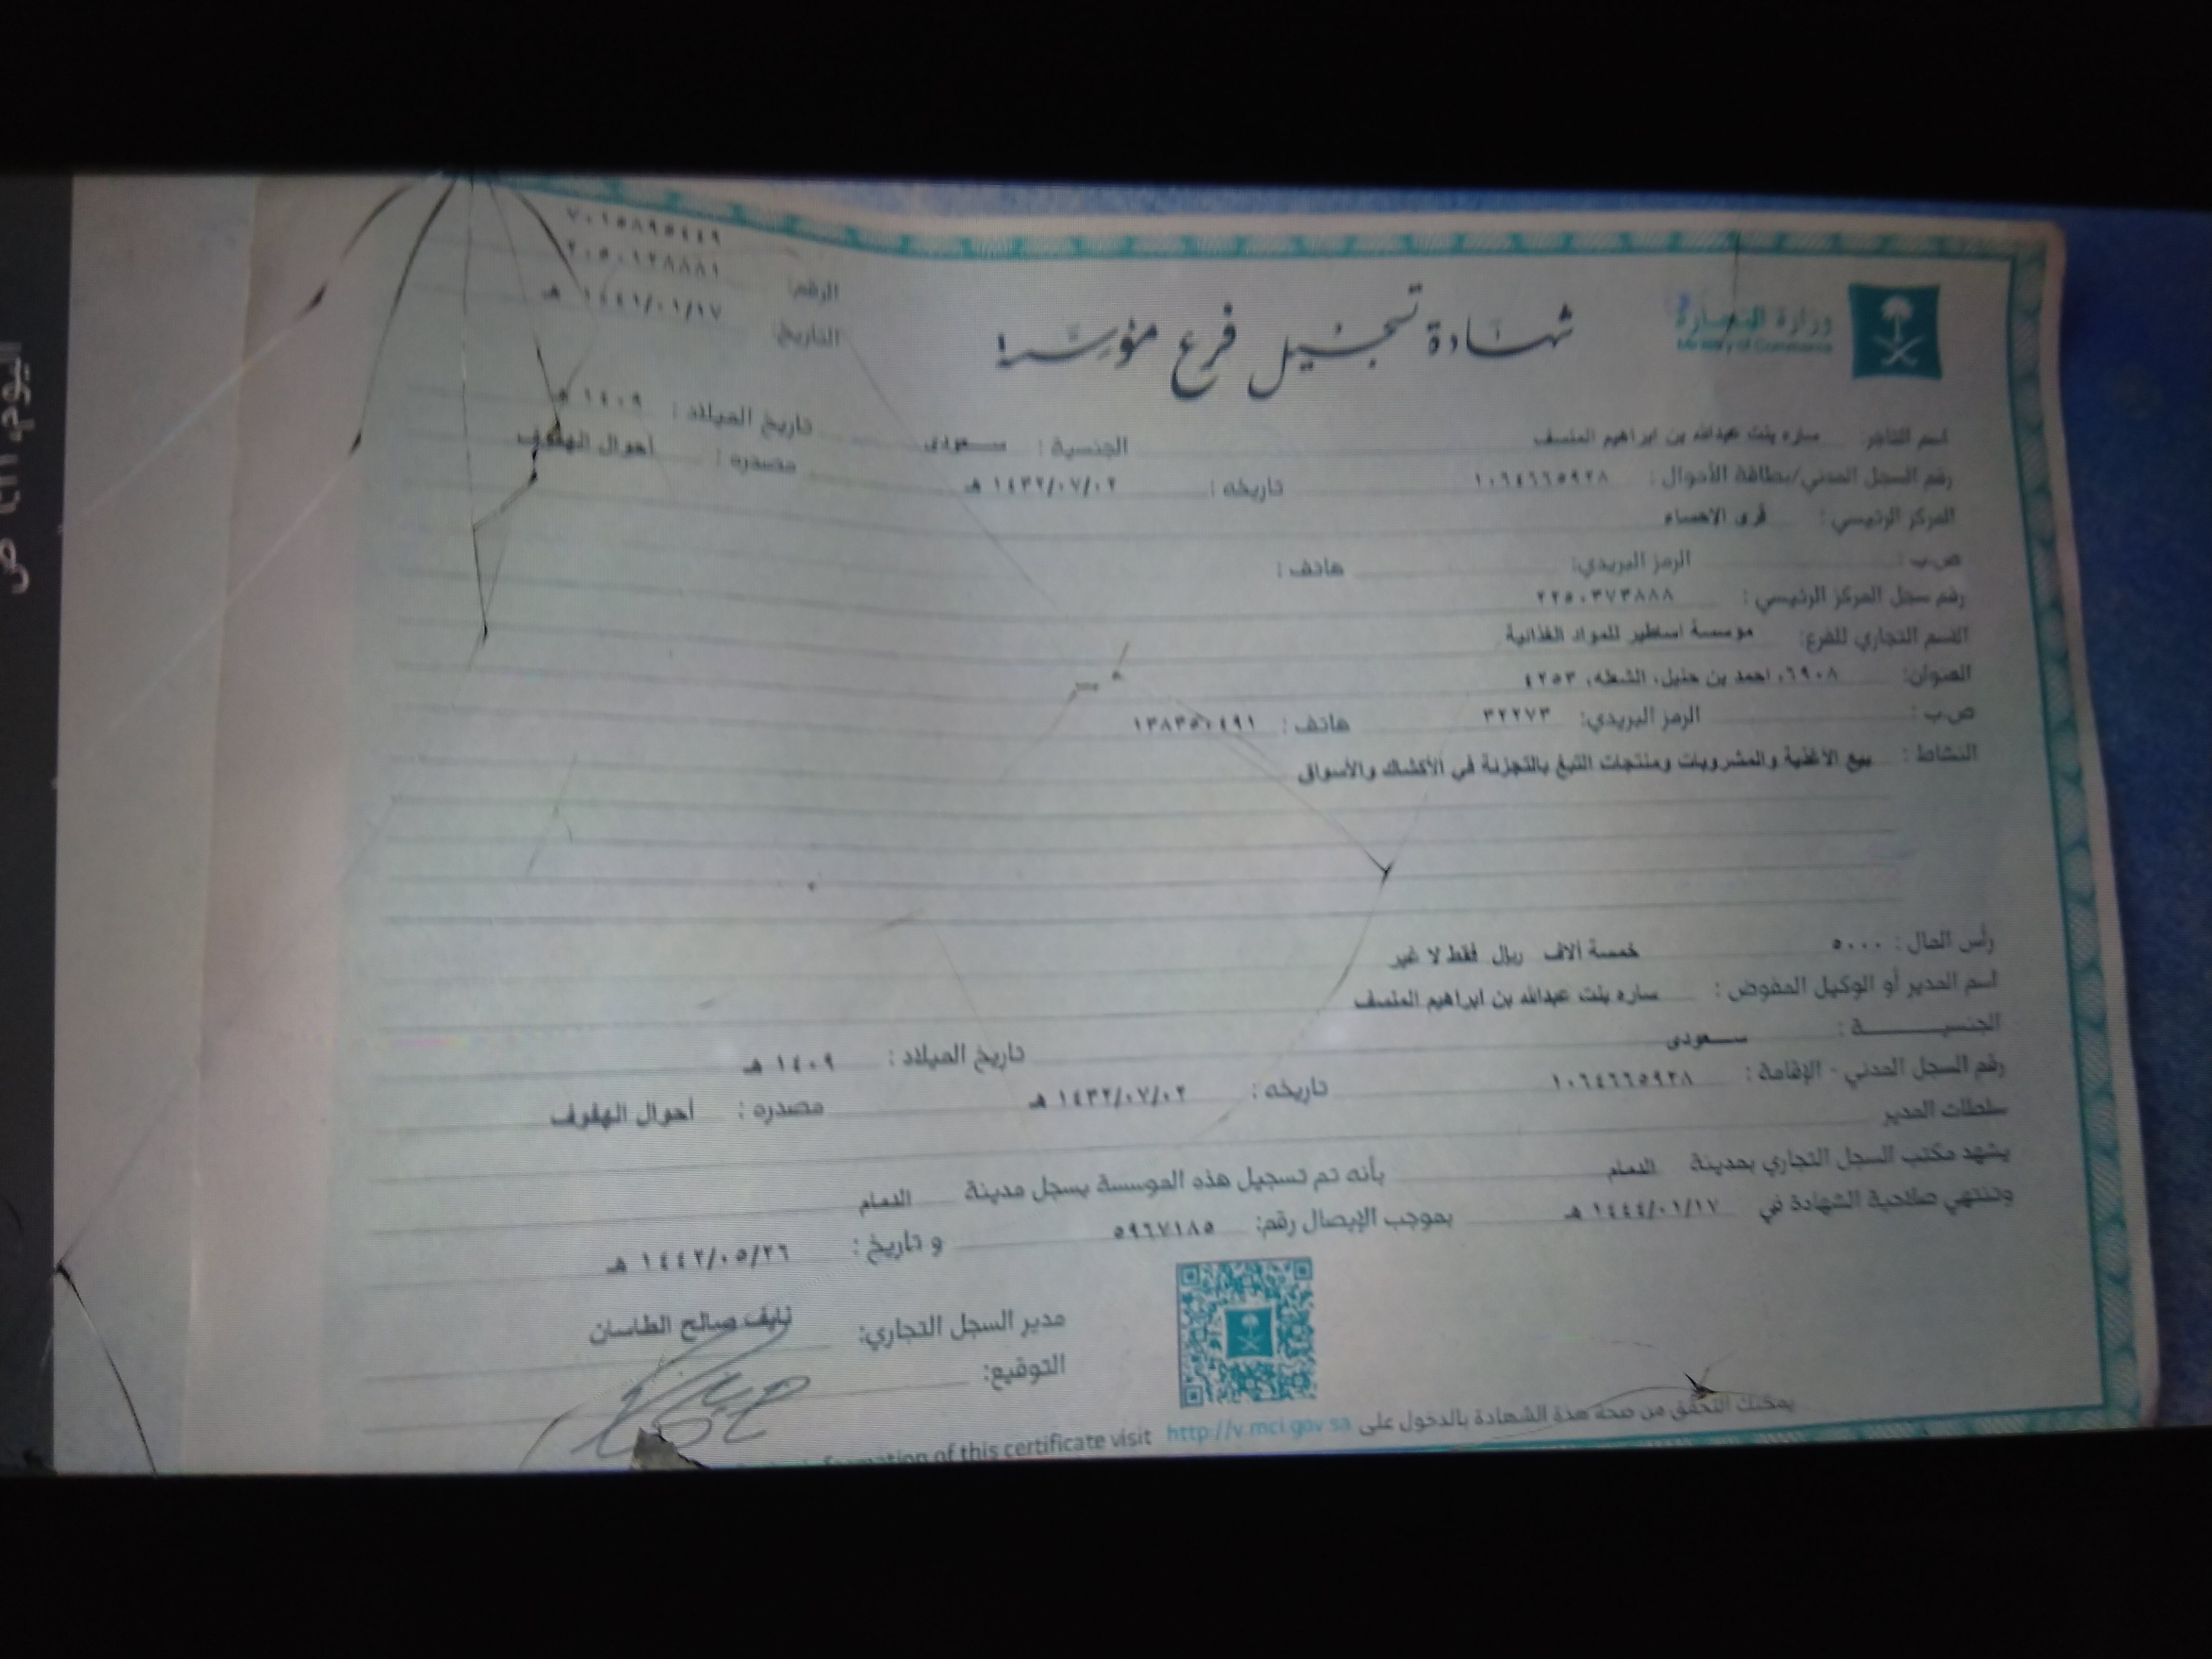 ٧٠١٥٨٩٥٤٤٩
الرقم: ٢٠٥٠١٢٨٨٨١
التاريخ: ١٤٤١/٠١/١٧ هـ
وزارة التجارة
Ministry of Commerce
شهادة تسجيل فرع مؤسسة
اسم التاجر ساره بنت عبدالله بن ابراهيم المنسف الجنسية : سعودى تاريخ الميلاد : ١٤٠٩ هـ
رقم السجل المدني/بطاقة الأحوال : ١٠٦٤٦٦٥٩٢٨ تاريخه : ١٤٣٢/٠٧/٠٢ هـ مصدره : أحوال الهفوف
المركز الرئيسي : قرى الاحساء
ص.ب : الرمز البريدي: هاتف :
رقم سجل المركز الرئيسي : ٢٢٥٠٣٧٣٨٨٨
الاسم التجاري للفرع: مؤسسة اساطير للمواد الغذائية
العنوان: ٦٩٠٨، احمد بن حنبل، الشعله، ٤٢٥٣
ص.ب : الرمز البريدي: ٣٢٢٧٣ هاتف : ١٣٨٣٥٠٤٩١
النشاط : بيع الأغذية والمشروبات ومنتجات التبغ بالتجزئة في الأكشاك والأسواق
رأس المال : ٥٠٠٠ خمسة آلاف ريال فقط لا غير
اسم المدير أو الوكيل المفوض : ساره بنت عبدالله بن ابراهيم المنسف
الجنسية : سعودى تاريخ الميلاد : ١٤٠٩ هـ
رقم السجل المدني - الإقامة : ١٠٦٤٦٦٥٩٢٨ تاريخه : ١٤٣٢/٠٧/٠٢ هـ مصدره : أحوال الهفوف
سلطات المدير
يشهد مكتب السجل التجاري بمدينة الدمام بأنه تم تسجيل هذه المؤسسة بسجل مدينة الدمام
وتنتهي صلاحية الشهادة في ١٤٤٤/٠١/١٧ هـ بموجب الإيصال رقم: ٥٩٦٧١٨٥ و تاريخ : ١٤٤٢/٠٥/٢٦ هـ
مدير السجل التجاري: نايف صالح الطاسان
التوقيع:
يمكنك التحقق من صحة هذة الشهادة بالدخول على http://v.mci.gov.sa information of this certificate visit
اليوم